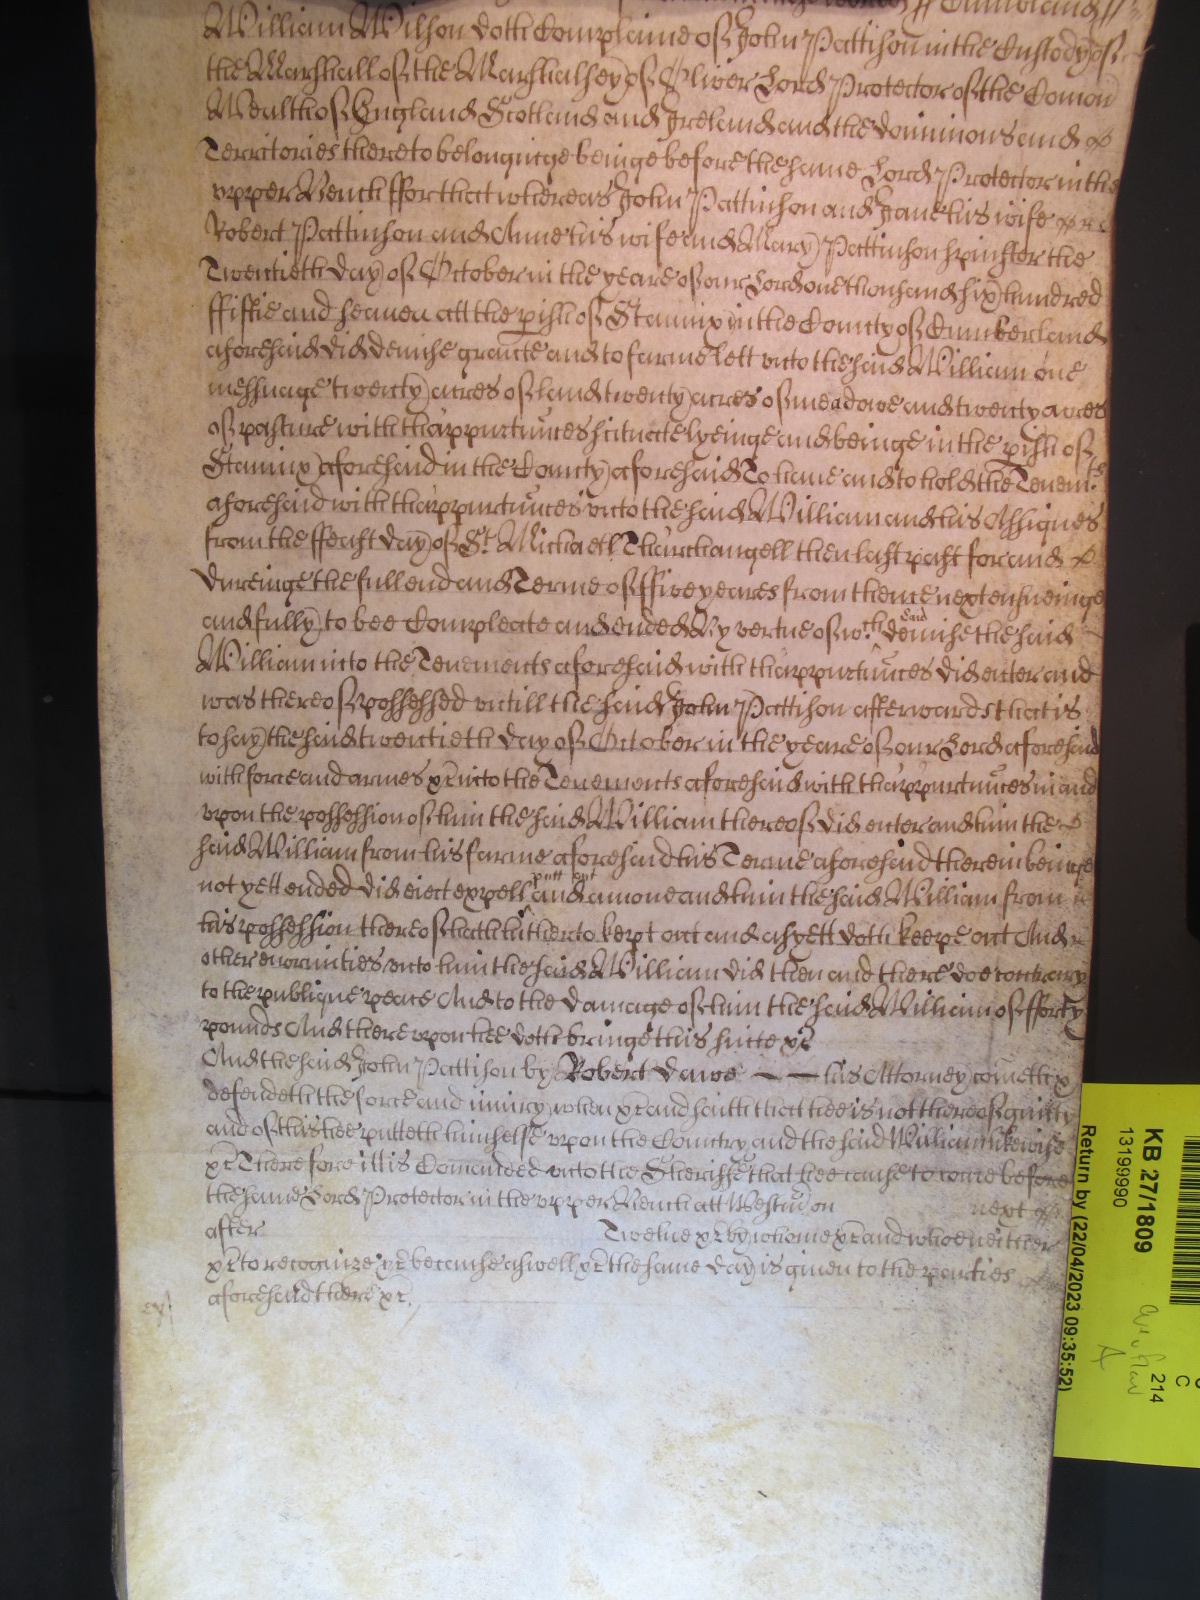 Cumberland ss
William Wilson doth Complaine of John Pattison in the Custody of
the Marshall of the Marshalsey of Oliver Lord Protector of the Comon
Wealth of England Scotland and Ireland and the dominions and
Territories thereto belonginge beinge before the same Lord Protector in the
upper Bench ffor that whereas John Pattinson and Jane his wife
Robert Pattinson and Anne his wife and Mary Pattinson spinster the
Twentieth day of October in the yeare of our Lord one thousand six hundred
ffiftie and seaven att the pish of Stannix in the County of Cumberland
aforesaid did demise graunte and to farme lett unto the said William one
messuage twenty acres of land twenty acres of meadowe and twenty acres
of pasture with thappurtunces scituate lyeinge and beinge in the pish of
Stannix aforesaid in the County aforesaid To have and to hold the Tenemts
aforesaid with thappurtunces unto the said William and his Assignes
from the ffeast day of St Michaell Tharchangell then last past for and
dureinge the full end and Terme of ffive yeares from thence next ensueinge
and fully to bee Compleate and ended By vertue of wch said demise the said
William into the Tenements aforesaid with thappurtunces did enter and
was thereof possessed untill the said John Pattison afterwards that is
to say the said twentieth day of October in the yeare of our Lord aforesaid
with force and armes &c into the Tenements aforesaid with thappurtunces in and
upon the possession of him the said William thereof did enter and him the
said William from his farme aforesaid his Terme aforesaid therein beinge
not yett ended did eiect expell putt out and amove and him the said William from
his possession thereof hath hitherto kept out and as yett doth keepe out And
other enormities unto him the said William did then and there doe contrary
to the publique peace And to the damage of him the said William of fforty
pounds And thereupon hee doth bringe this suite &c
And the said John Pattison by Robert Dawe his Attorney cometh &
defendeth the force and iniury when &c and saith that hee is not thereof guilty
and of this hee putteth himselfe upon the Country and the said William likewise
&c Therefore itt is Comanded unto the Sheriffe that hee cause to come before
the same Lord Protector in the upper Bench att Westm on next
after Twelve &c by whome &c and whoe neither
&c to recognize &c because aswell &c the same day is given to the parties
aforesaid there &c
KB 27/1809
13199990
Return by (22/04/2023 09:35:52)
214
C